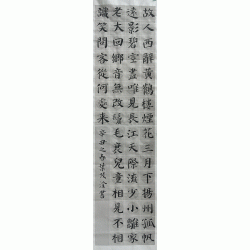 故人西辭黃鶴樓煙花三月下揚州孤帆
遠影碧空盡唯見長江天際流少小離家
老大回鄉音無改鬢毛衰兒童相見不相
識笑問客從何處來 辛丑之春